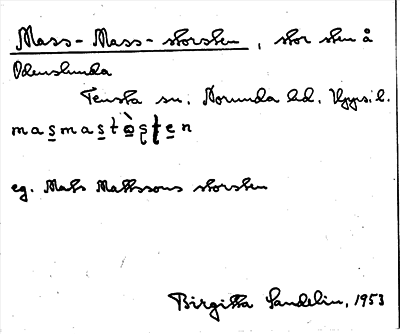 Mass-Mass-storsten, stor sten å
Odenslunda
Tensta sn. Norunda hd. Uppsi l.
masmastòsten
eg. Mats Matssons storsten
Birgitta Sandelin, 1953